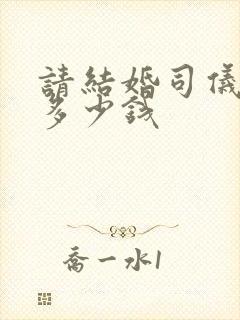 請結婚司儀
多少錢
喬一水1